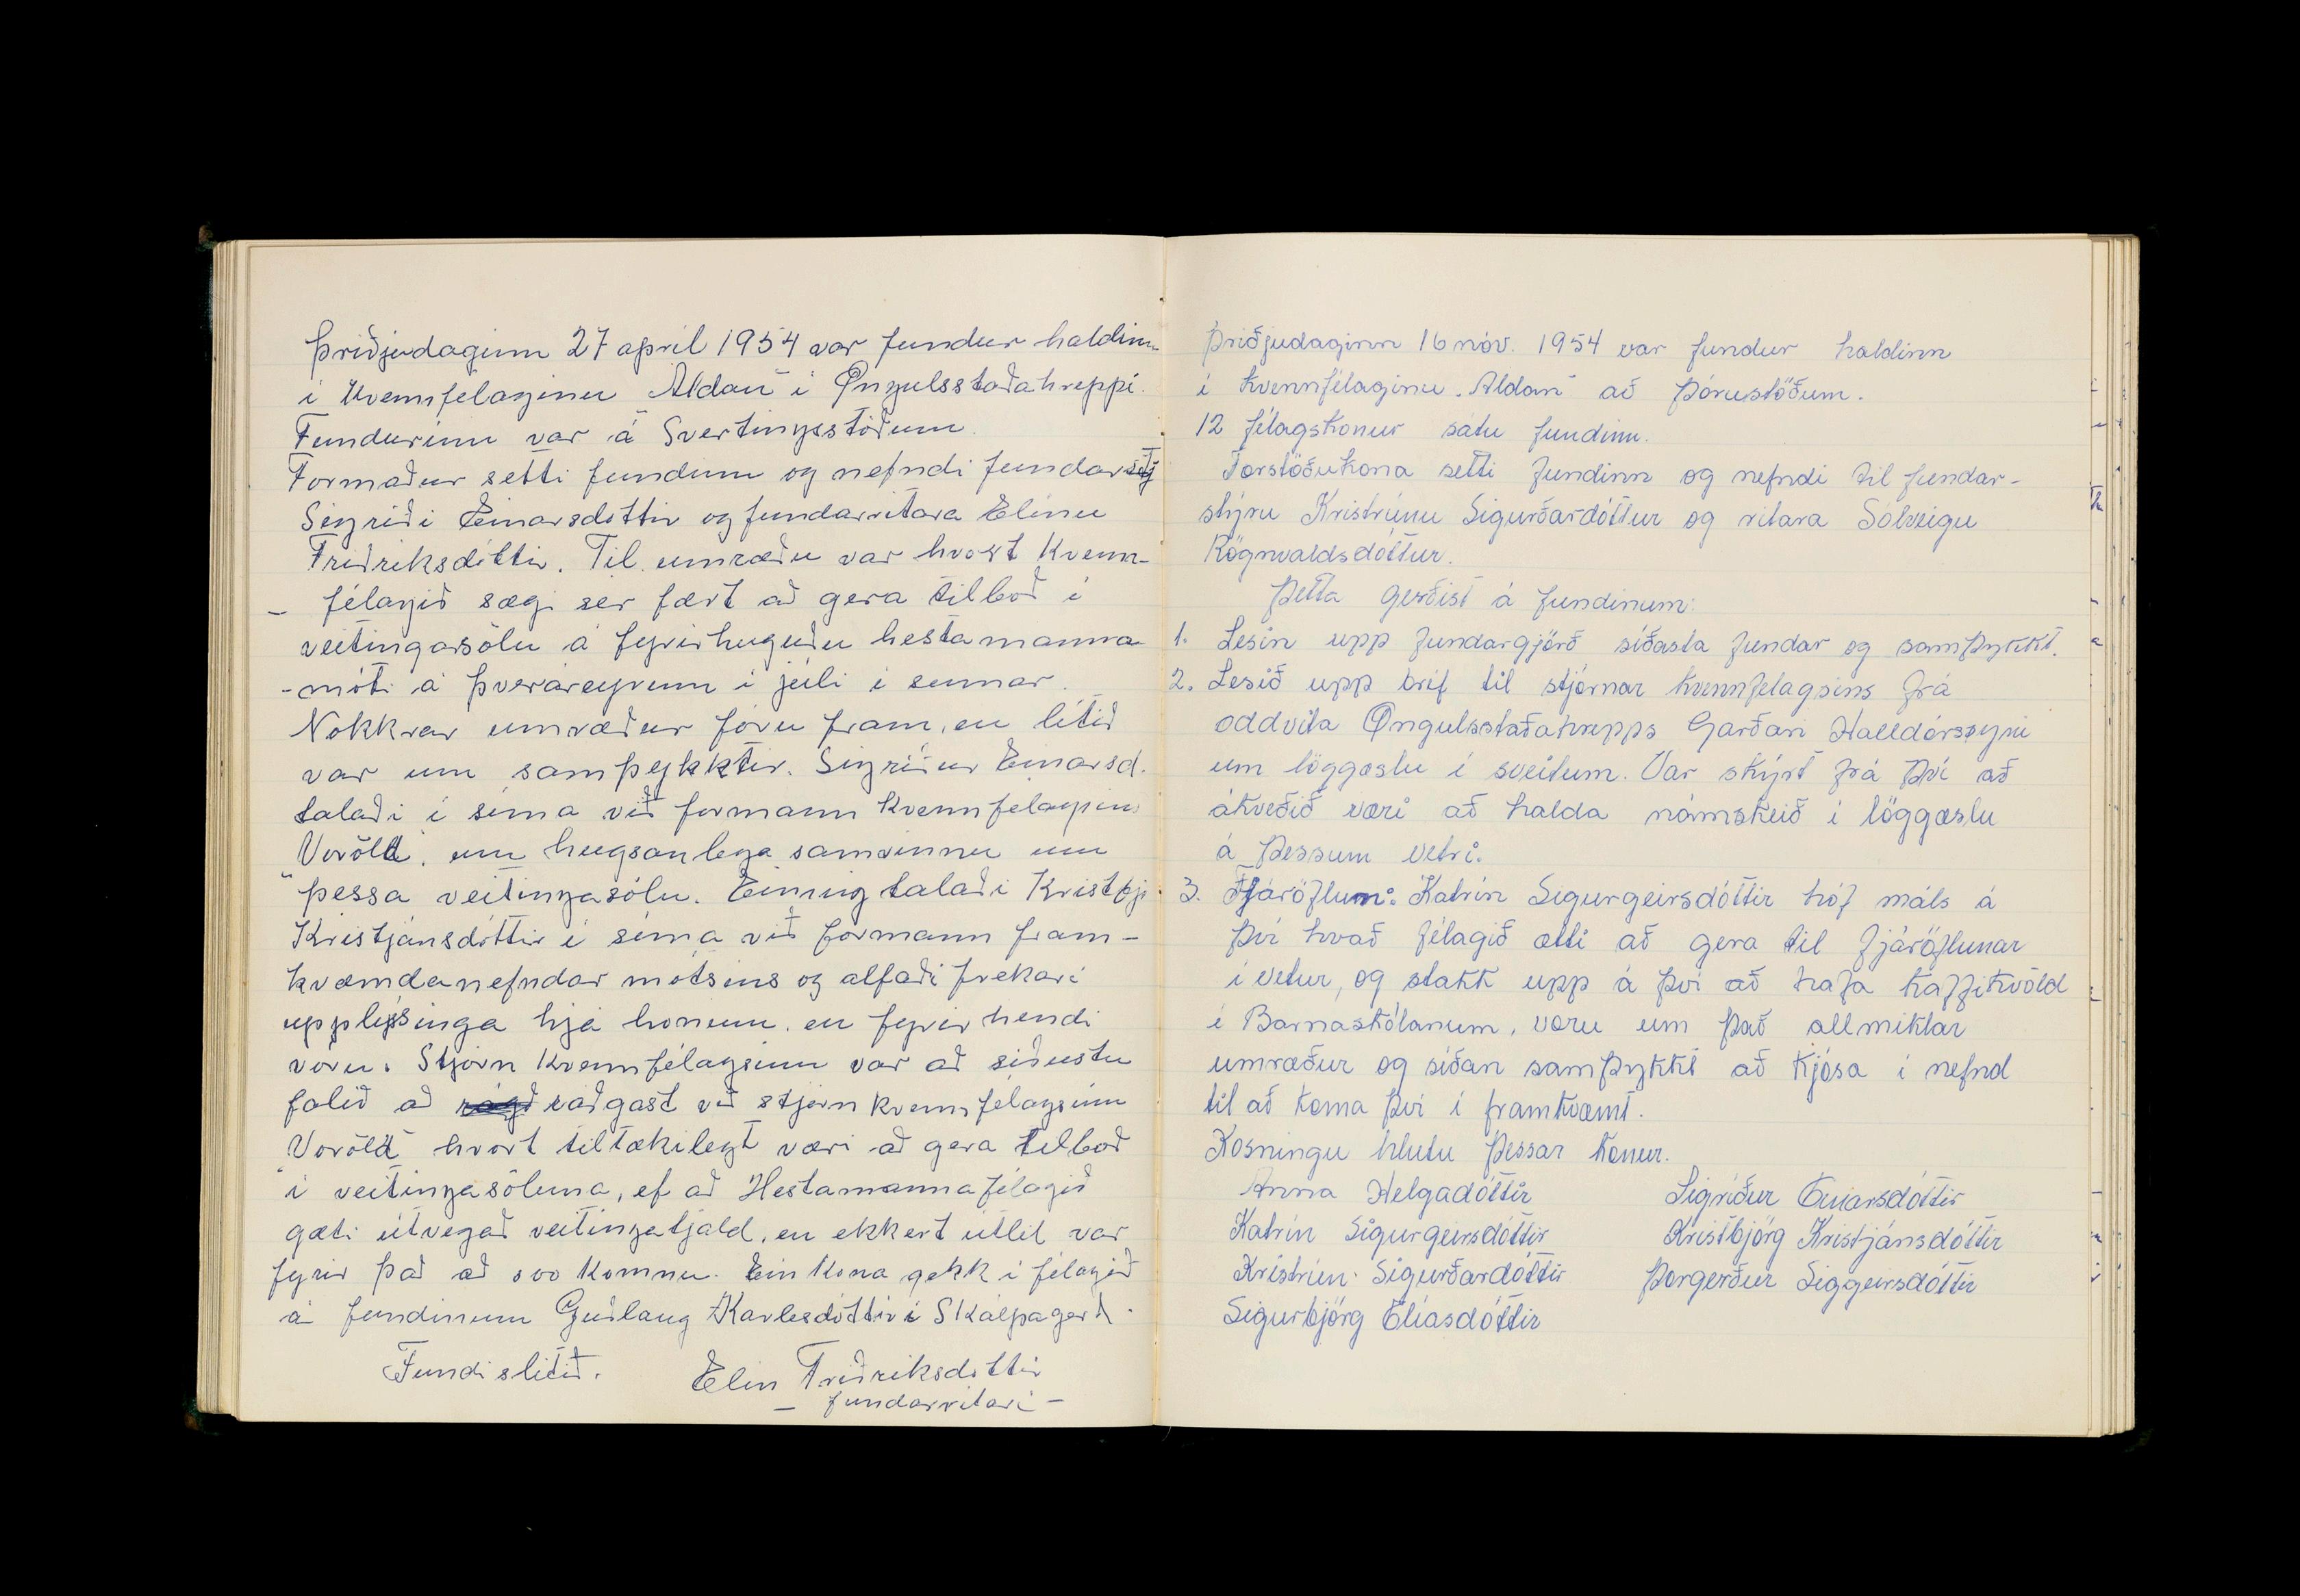 Þriðjudaginn 27 apríl 1954 var fundur haldinn
í Kvennfélaginu Aldan í Øngulsstaðahreppi.
Fundurinn var á Svertingsstöðum.
Formaður setti fundinn og nefndi fundarstj
Sigríði Einarsdóttir og fundarritara Elínu
Friðriksdóttir. Til umræðu var hvort Kvenn-
- félagið sægi sér fært að gera tilboð í
veitingarsölu á fyrirhuguðu hestamanna
- móti á Þveráreyrum í júlí í sumar.
Nokkrar umræður fóru fram, en lítið
var um samþykktir. Sigríður Einarsd.
talaði í síma við formann Kvennfélagsins
Voröld, um hugsanlega samvinnu um
þessa veitingasölu. Einnig talaði Kristbj.
Kristjánsdóttir í síma við formann fram-
kvæmdanefndar mótsins og alfaði frekari
upplýsinga hjá honum, en fyrir hendi
voru. Stjórn Kvennfélagsinn var að síðustu
falið að ráðgast við stjórn kvennfélagsinn
"Voröld" hvort tiltækilegt væri að gera tilboð
í veitingasöluna, ef að Hestamannafélagið
gæti útvegað veitingatjald, en ekkert útlit var
fyrir það að svo komnu. Ein kona gekk í félagið
á fundinum Guðlaug Karlesdóttir í Skálpagerð.
Fundi slitið.
Elín Friðriksdóttir
- fundarritari -
Þriðjudaginn 16 nóv. 1954 var fundur haldinn
í Kvennfélaginu „Aldan" að Þórustöðum.
12 félagskonur sátu fundinn.
Forstöðukona setti fundinn og nefndi til fundar-
stýru Kristrúnu Sigurðardóttur og ritara Sólveigu
Rögnvaldsdóttur.
Þetta gerðist á fundinum:
1. Lesin upp fundargjörð síðasta fundar og samþykkt.
2. Lesið upp bréf til stjórnar kvennfélagsins frá
oddvita Øngulsstaðahrepps Garðari Halldórssyni
um löggæslu í sveitum. Var skýrt frá því að
ákveðið væri að halda námskeið í löggæslu
á þessum vetri.
3. Fjáröflun: Katrín Sigurgeirsdóttir hóf máls á
því hvað félagið ætti að gera til fjáröflunar
í vetur, og stakk upp á því að hafa kaffikvöld
í Barnaskólanum, voru um það allmiklar
umræður og síðan samþykkt að kjósa í nefnd
til að koma því í framkvæmt.
Kosningu hlutu þessar konur.
Anna Helgadóttir Sigríður Einarsdóttir
Katrín Sigurgeirsdóttir Kristbjörg Kristjánsdóttir
Kristrún Sigurðardóttir Þorgerður Siggeirsdóttir
Sigurbjörg Elíasdóttir